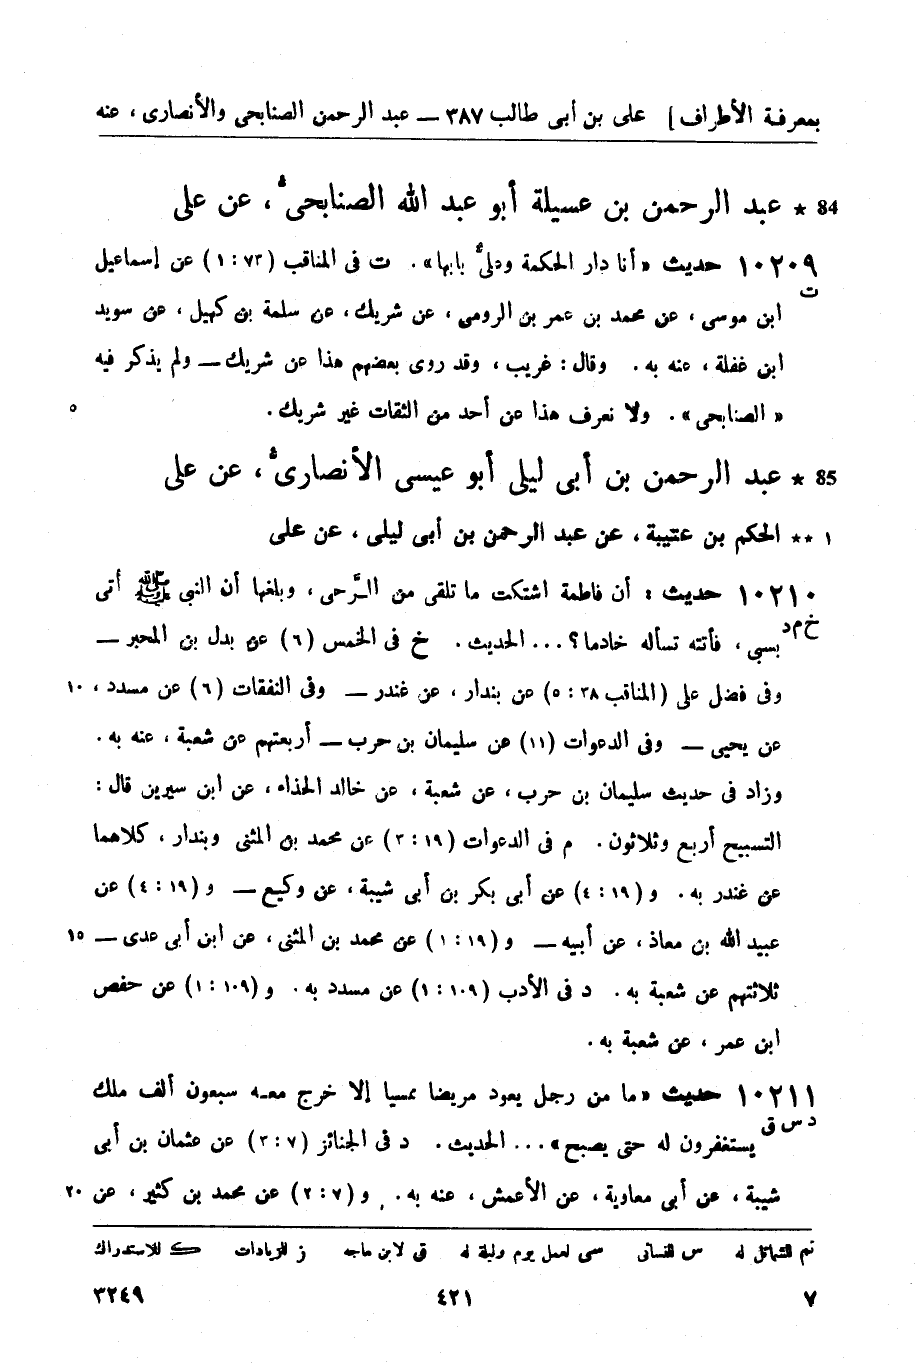 بمعرفة الأطراف] على بن أبى طالب ٣٨٧ — عبد الرحمن الصنابحى والأنصارى ، عنه
84 * عبد الرحمن بن عسيلة أبو عبد الله الصنابحىُّ ، عن على
١٠٢٠٩ حديث «أنا دار الحكمة وعلىٌّ بابها» . ت فى المناقب (٧٣ : ١) عن إسماعيل
ت
ابن موسى ، عن محمد بن عمر بن الرومى ، عن شريك ، عن سلمة بن كهيل ، عن سويد
ابن غفلة ، عنه به . وقال : غريب ، وقد روى بعضهم هذا عن شريك — ولم يذكر فيه
« الصنابحى» . ولا نعرف هذا عن أحد من الثقات غير شريك . ٥
85 * عبد الرحمن بن أبى ليلى أبو عيسى الأنصارىُّ ، عن على
١ ** الحكم بن عتيبة ، عن عبد الرحمن بن أبى ليلى ، عن على
١٠٢١٠ حديث : أن فاطمة اشتكت ما تلقى من الرَّحى ، وبلغها أن النبى ﷺ أتى
خ م د
بسبى ، فأتته تسأله خادما ؟ ... الحديث . خ فى الخمس (٦) عن بدل بن المحبر —
وفى فضل على (المناقب ٣٨ : ٥) عن بندار ، عن غندر — وفى النفقات (٦) عن مسدد ، ١٠
عن يحيى — وفى الدعوات (١١) عن سليمان بن حرب — أربعتهم عن شعبة ، عنه به .
وزاد فى حديث سليمان بن حرب ، عن شعبة ، عن خالد الحذاء ، عن ابن سيرين قال :
التسبيح أربع وثلاثون . م فى الدعوات (١٩ : ٣) عن محمد بن المثنى وبندار ، كلاهما
عن غندر به . و (١٩ : ٤) عن أبى بكر بن أبى شيبة ، عن وكيع — و (١٩ : ٤) عن
عبيد الله بن معاذ ، عن أبيه — و (١٩ : ١) عن محمد بن المثنى ، عن ابن أبى عدى — ١٥
ثلاثتهم عن شعبة به . د فى الأدب (١٠٩ : ١) عن مسدد به . و (١٠٩ : ١) عن حفص
ابن عمر ، عن شعبة به .
١٠٢١١ حديث «ما من رجل يعود مريضا ممسيا إلا خرج معه سبعون ألف ملك
د س ق
يستغفرون له حتى يصبح» ... الحديث . د فى الجنائز (٧ : ٢) عن عثمان بن أبى
شيبة ، عن أبى معاوية ، عن الأعمش ، عنه به . و (٧ : ٢) عن محمد بن كثير ، عن ٢٠
تم للشمائل له س للنسائى سى لعمل يوم وليلة له ق لابن ماجه ز للزيادات ك للاستدراك
٧ ٤٢١ ٣٢٤٩